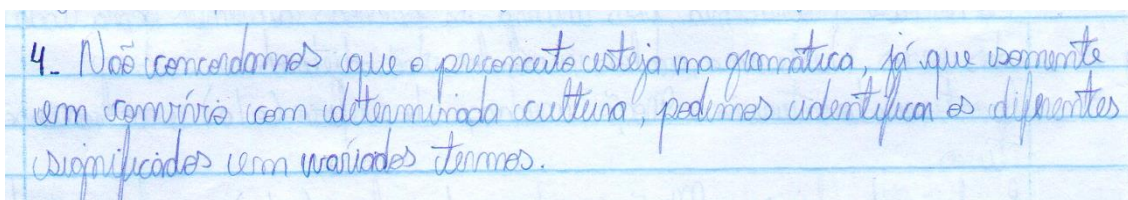 4- Não concordamos que o preconceito esteja na gramática, já que somente
em convívio com determinada cultura, podemos identificar os diferentes
significados em variados termos.